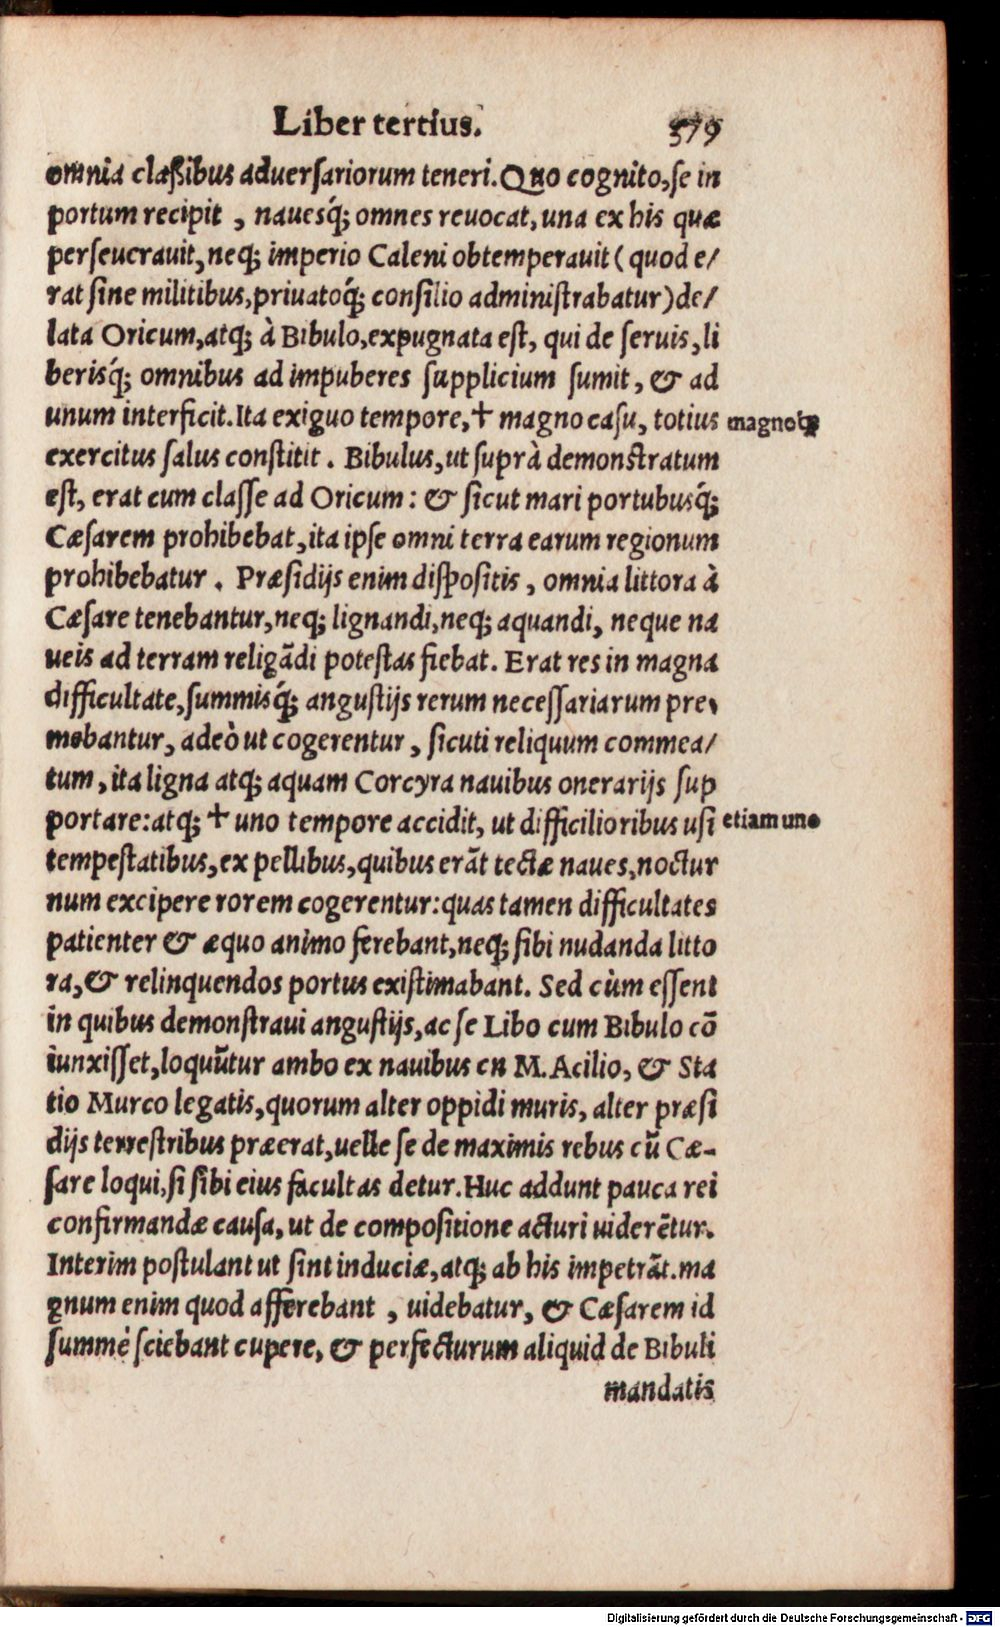 Liber tertius. 579
omnia claſsibus aduerſariorum teneri. Quo cognito, ſe in
portum recipit, naueśq; omnes reuocat, una ex his quæ
perſeuerauit, neq; imperio Caleni obtemperauit (quod e/
rat ſine militibus, priuatoq́; conſilio adminiſtrabatur) de/
lata Oricum, atq; à Bibulo, expugnata eſt, qui de ſeruis, li
berisq́; omnibus ad impuberes ſupplicium ſumit, & ad
unum interficit. Ita exiguo tempore, † magno caſu, totius magnoq́;
exercitus ſalus conſtitit. Bibulus, ut ſuprà demonſtratum
eſt, erat cum claſſe ad Oricum: & ſicut mari portubusq́;
Cæſarem prohibebat, ita ipſe omni terra earum regionum
prohibebatur. Præſidijs enim diſpoſitis, omnia littora à
Cæſare tenebantur, neq; lignandi, neq; aquandi, neque na
ueis ad terram religãdi poteſtas fiebat. Erat res in magna
difficultate, ſummisq́; anguſtijs rerum neceſſariarum pre/
mebantur, adeò ut cogerentur, ſicuti reliquum commea/
tum, ita ligna atq; aquam Corcyra nauibus onerarijs ſup
portare: atq; † uno tempore accidit, ut difficilioribus uſi etiam uno
tempeſtatibus, ex pellibus, quibus erãt tectæ naues, noctur
num excipere rorem cogerentur: quas tamen difficultates
patienter & æquo animo ferebant, neq; ſibi nudanda litto
ra, & relinquendos portus exiſtimabant. Sed cùm eſſent
in quibus demonſtraui anguſtijs, ac ſe Libo cum Bibulo cõ
iunxiſſet, loquũtur ambo ex nauibus cn M. Acilio, & Sta
tio Murco legatis, quorum alter oppidi muris, alter præſi
dijs terreſtribus præerat, uelle ſe de maximis rebus cũ Cæ-
ſare loqui, ſi ſibi eius facultas detur. Huc addunt pauca rei
confirmandæ cauſa, ut de compoſitione acturi uiderẽtur.
Interim poſtulant ut ſint induciæ, atq; ab his impetrãt. ma
gnum enim quod afferebant, uidebatur, & Cæſarem id
ſummè ſciebant cupere, & perfecturum aliquid de Bibuli
mandatis
Digitalisierung gefördert durch die Deutsche Forschungsgemeinschaft - DFG